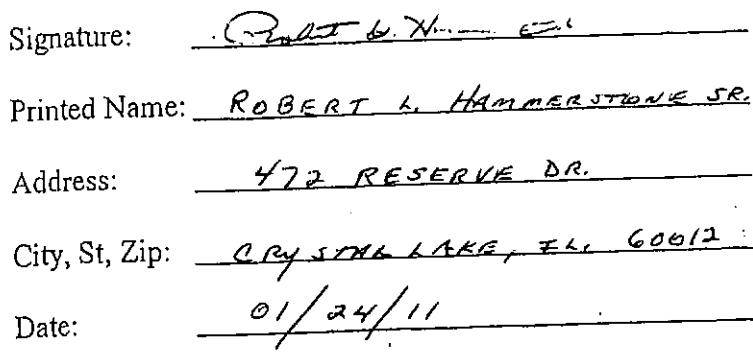 Signature: Robert L.
Printed Name: ROBERT L. HAMMERSTONE SR.
Address: 472 RESERVE DR.
City, St, Zip: CRYSTAL LAKE, IL, 60012
Date: 01/24/11